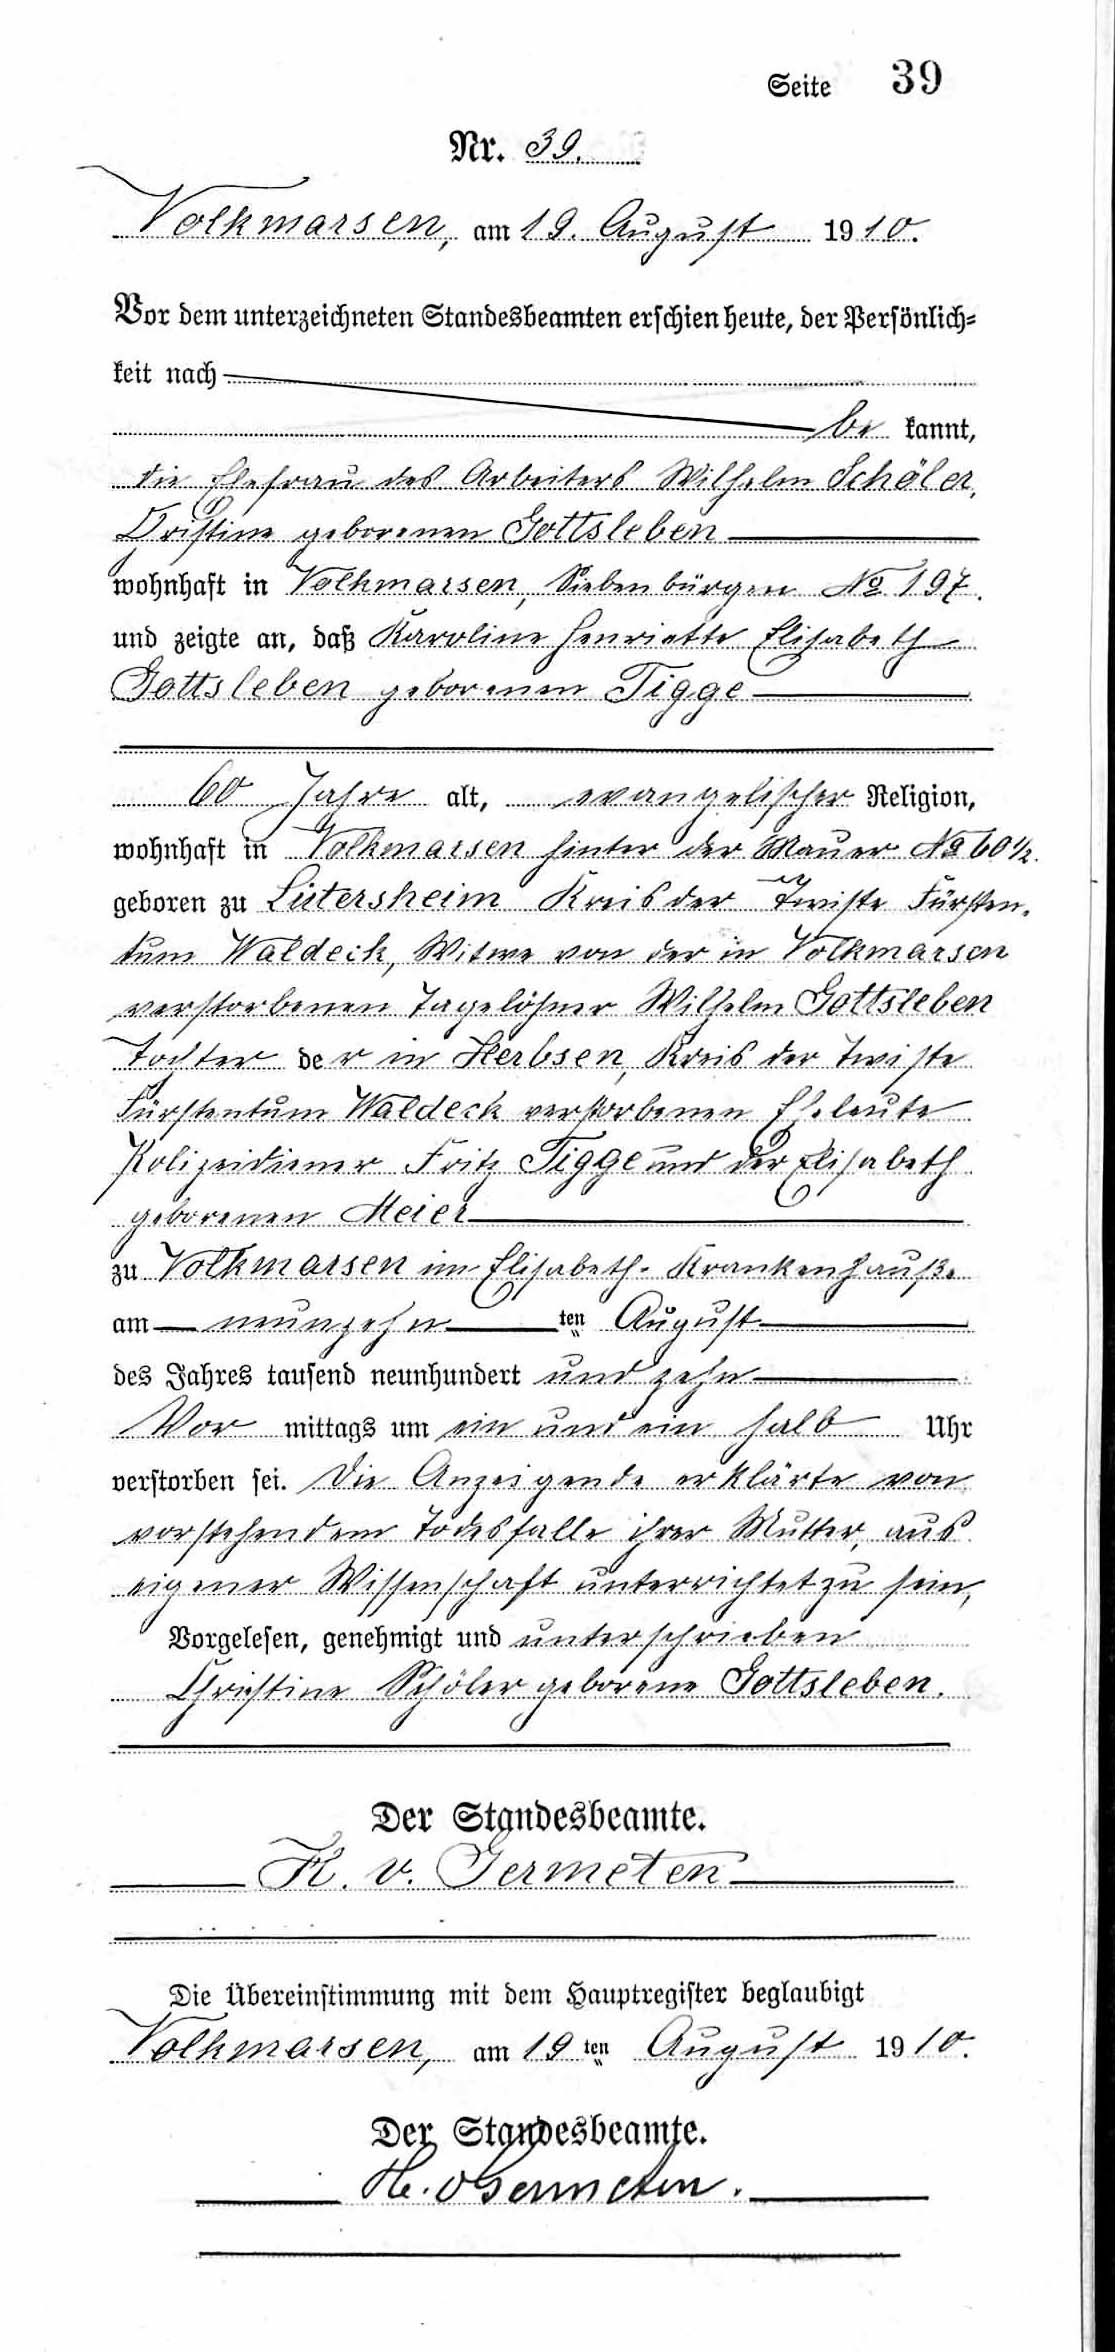 Seite 39
Nr. 39.
Volkmarsen, am 19. August 1910.
Vor dem unterzeichneten Standesbeamten erschien heute, der Persönlich-
keit nach
be kannt,
die Ehefrau des Arbeiters Wilhelm Schöler,
Kristine geborenen Gottsleben
wohnhaft in Volkmarsen, Siebenbürgen No 197.
und zeigte an, daß Karoline Henriette Elisabeth
Gottsleben geborenen Tigge
60 Jahre alt, evangelischer Religion,
wohnhaft in Volkmarsen hinter der Mauer No 60 1/2.
geboren zu Lütersheim Kreis der Twiste Fürsten-
tum Waldeck, Witwe von der in Volkmarsen
verstorbenen Tagelöhner Wilhelm Gottsleben
Tochter der in Herbsen, Kreis der Twiste
Fürstentum Waldeck verstorbenen Eheleute
Polizeidiener Fritz Tigge und der Elisabeth
geborenen Meier
zu Volkmarsen im Elisabeth-Krankenhauße
am neunzehn ten August
des Jahres tausend neunhundert und zehn
Vor mittags um ein und ein halb Uhr
verstorben sei. Die Anzeigende erklärte von
vorstehendem Todesfalle ihrer Mutter, aus
eigener Wissenschaft unterrichtet zu sein,
Vorgelesen, genehmigt und unterschrieben
Christine Schöler geborene Gottsleben.
Der Standesbeamte.
K. v. Germeten
Die Übereinstimmung mit dem Hauptregister beglaubigt
Volkmarsen, am 19 ten August 1910.
Der Standesbeamte.
K. v Germeten.